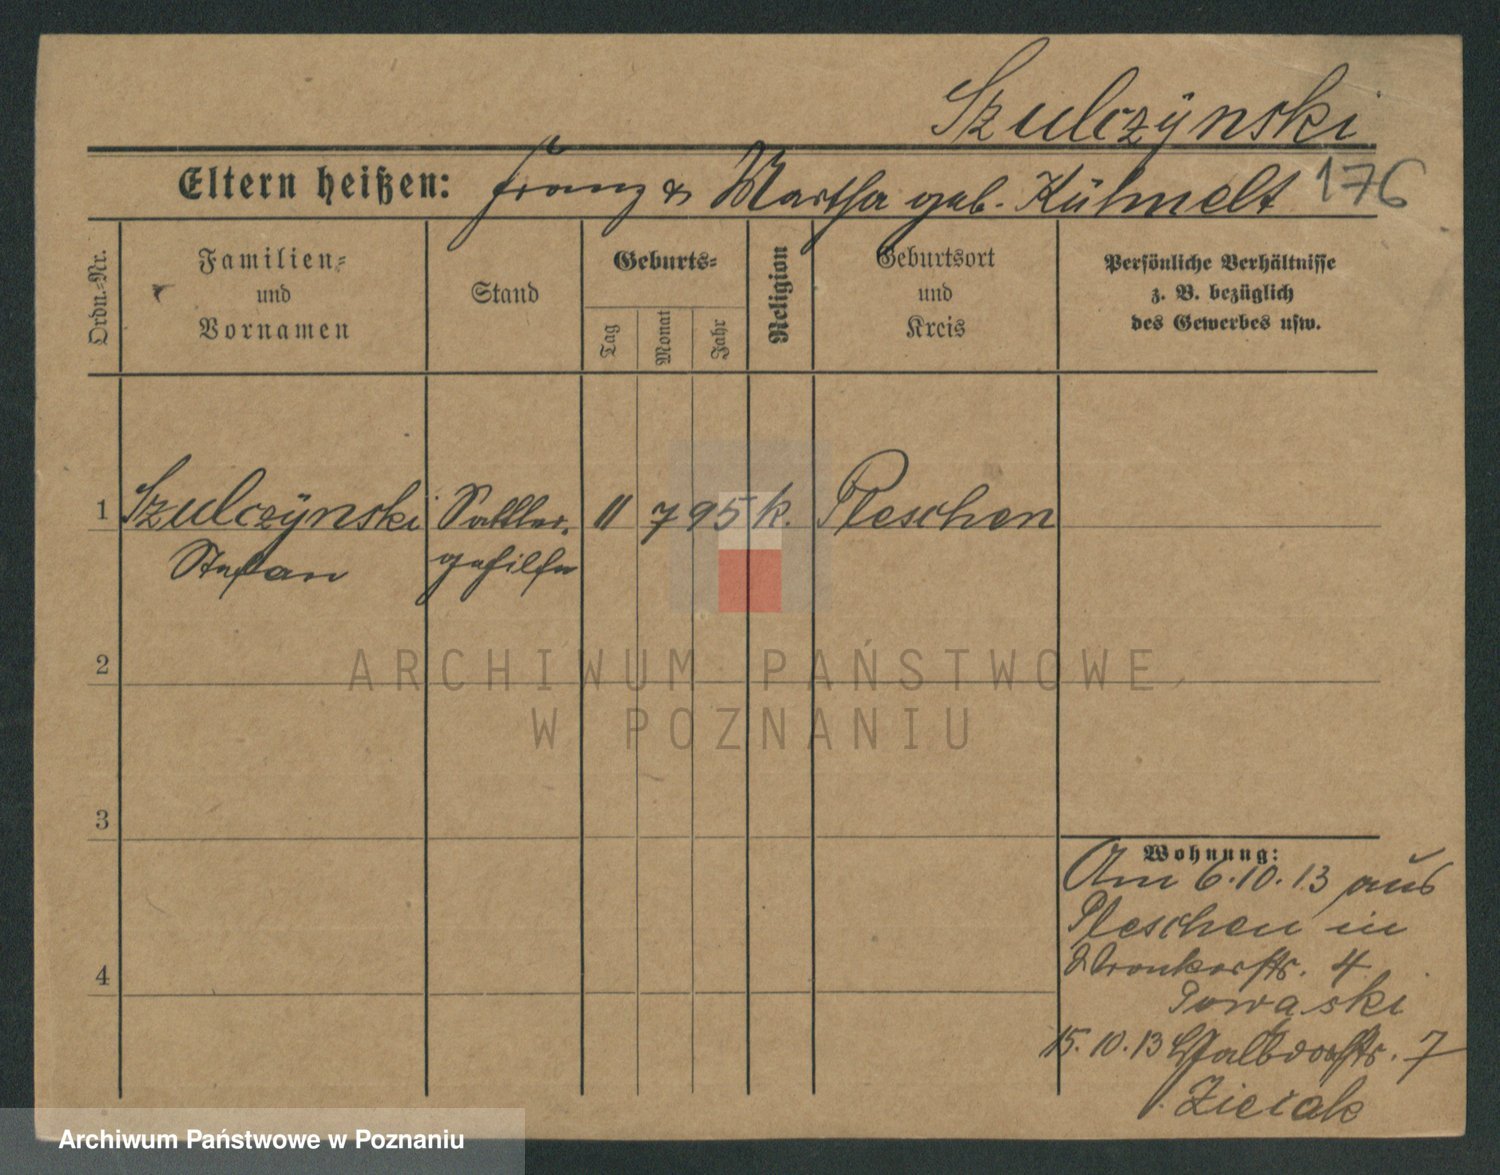 Szulczÿnski
Eltern heißen: Franz & Martha geb. Kühnelt 176
Ordn.-Nr.
Familien-
und
Vornamen
Stand
Geburts-
Tag
Monat
Jahr
Religion
Geburtsort
und
Kreis
Persönliche Verhältnisse
z. B. bezüglich
des Gewerbes usw.
1 Szulczÿnski Sattler- 11 7 95 k. Pleschen
Stefan gehilfe
2
3
4
Wohnung:
Am 6.10.13 aus
Pleschen in
Wronkerstr. 4
15.10.13 Halbdorfstr. 7
Zieiak
ARCHIWUM PAŃSTWOWE
W POZNANIU
Archiwum Państwowe w Poznaniu